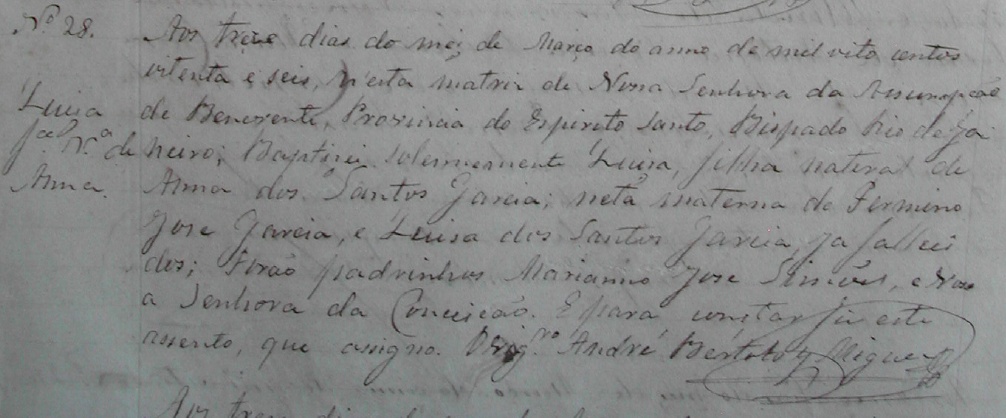 Nº 28.
Luiza
fª Nª de
Anna.
Aos treze dias do mez de Março do anno de mil oito centos
oitenta e seis, n'esta matriz de Nossa Senhora da Assumpção
de Benevente, Provincia do Espirito Santo, Bispado Rio de Ja
neiro; Baptizei solemnemente Luiza, filha natural de
Anna dos Santos Garcia; neta materna de Firmino
Jose Garcia, e Luisa dos Santos Garcia, ja fallei
dos; Forão padrinhos Marianno Jose Simões, e Noss
a Senhora da Conceição. E para constar fiz este
assento, que assigno. O Vigrº André
Aos treze dias